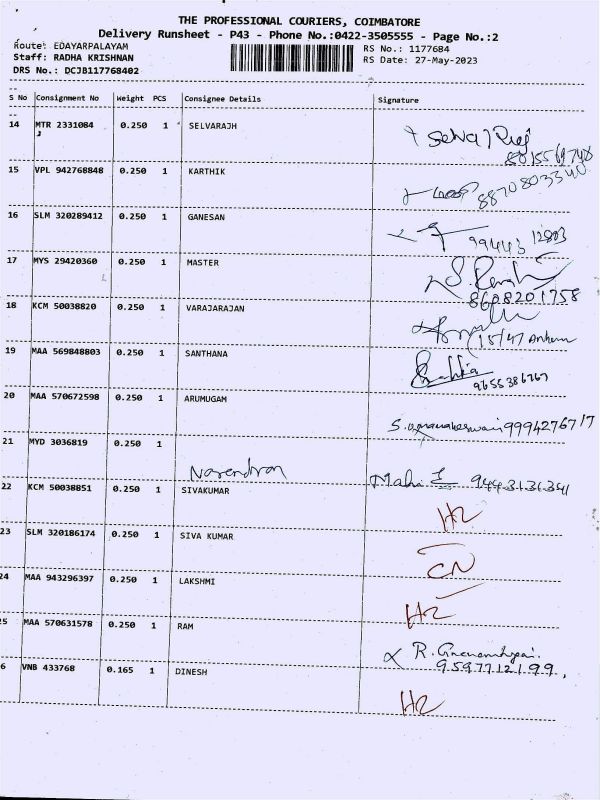 THE PROFESSIONAL COURIERS, COIMBATORE
Delivery Runsheet - P43 - Phone No.:0422-3505555 - Page No.:2
Route: EDAYARPALAYAM RS No.: 1177684
Staff: RADHA KRISHNAN RS Date: 27-May-2023
DRS No.: DCJB117768402
S No Consignment No Weight PCS Consignee Details Signature
14 MTR 2331084 0.250 1 SELVARAJH
J
15 VPL 942768848 0.250 1 KARTHIK
8870803340
16 SLM 320289412 0.250 1 GANESAN
99443 12803
17 MYS 29420360 0.250 1 MASTER
8608201758
18 KCM 50038820 0.250 1 VARAJARAJAN
19 MAA 569848803 0.250 1 SANTHANA
9655386767
20 MAA 570672598 0.250 1 ARUMUGAM
9994276717
21 MYD 3036819 0.250 1
Narendran Maha 9443131341
22 KCM 50038851 0.250 1 SIVAKUMAR
H2
23 SLM 320186174 0.250 1 SIVA KUMAR
CN
24 MAA 943296397 0.250 1 LAKSHMI
H2
5 MAA 570631578 0.250 1 RAM
R.
9597712199,
6 VNB 433768 0.165 1 DINESH
H2